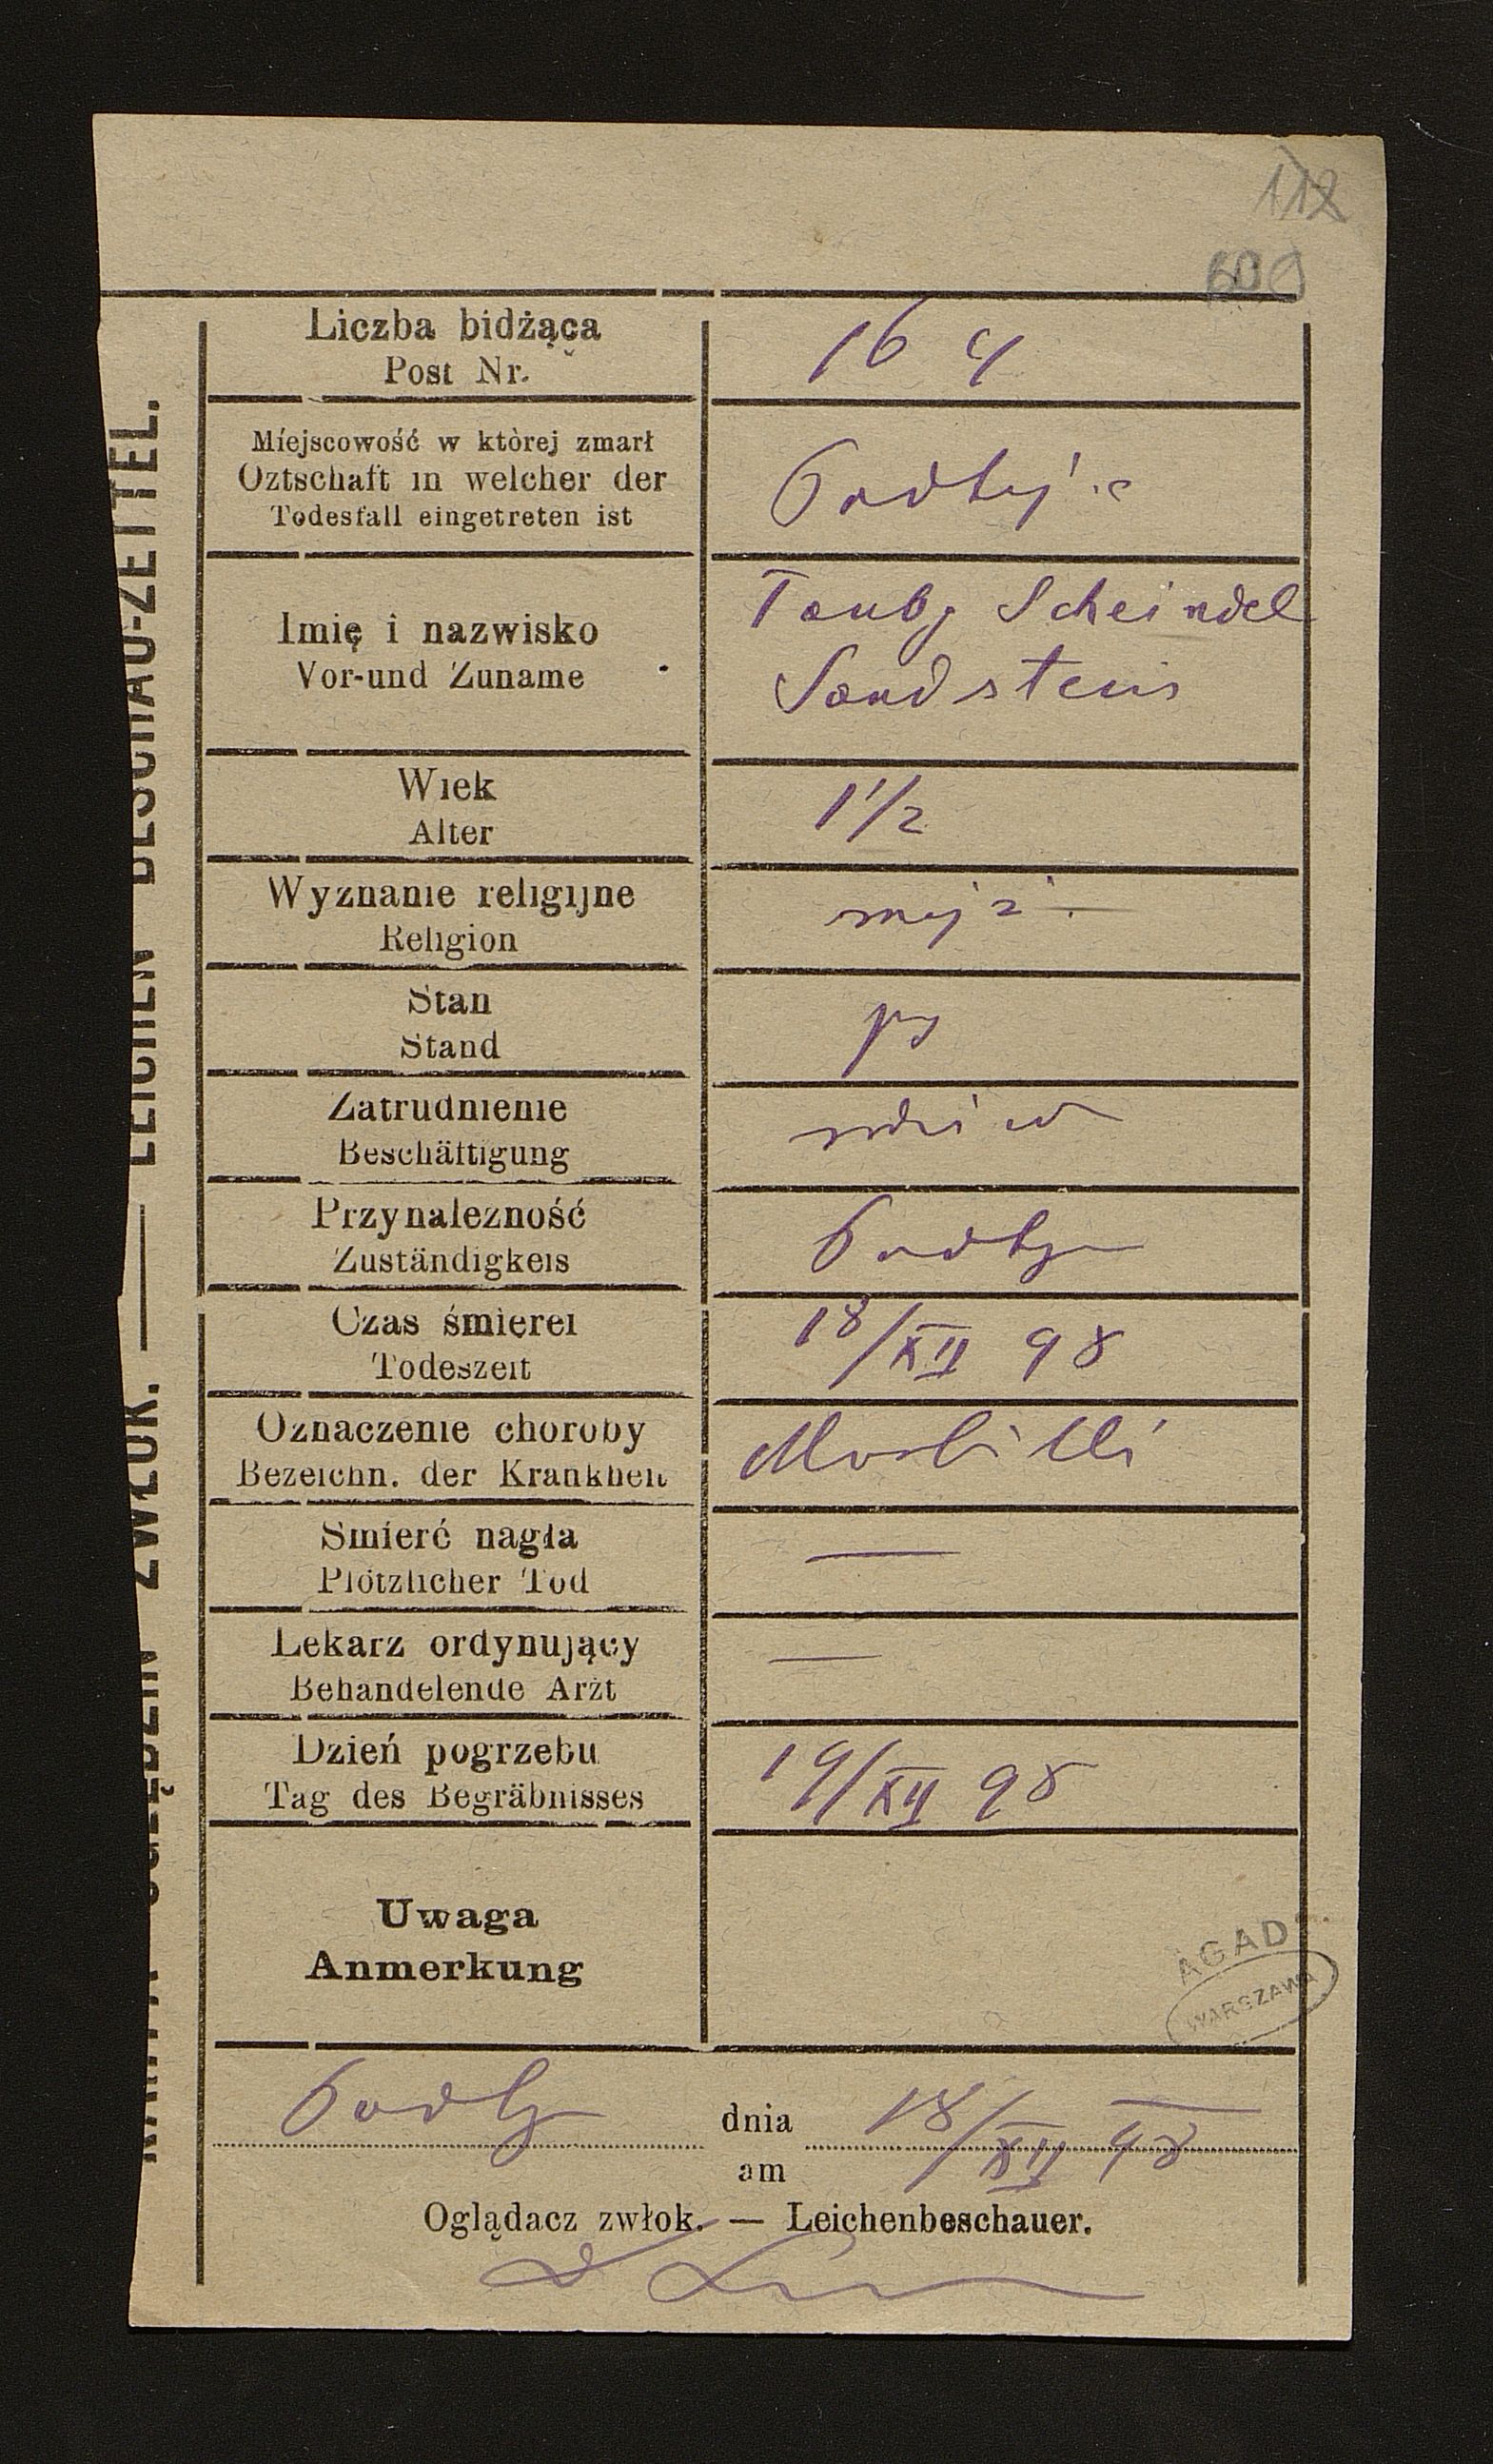 112
609
Liczba bidżąca
Post Nr.
164
Miejscowość w ktòrej zmarł
Oztschaft in welcher der
Todesfall eingetreten ist
Imię i nazwisko
Vor-und Zuname
Tauby Scheindel
Sandstein
Wiek
Alter
1 1/2
Wyznanie religijne
Religion
mojż.
Stan
Stand
Zatrudnienie
Beschäftigung
Przynależność
Zuständigkeis
Czas śmierei
Todeszeit
18/XII 98
Oznaczenie choroby
Bezeichn. der Krankheit
Morbilli
Smierć nagła
Plötzlicher Tod
—
Lekarz ordynujący
Behandelende Arżt
—
Dzień pogrzebu
Tag des Begräbnisses
19/XII 98
Uwaga
Anmerkung
AGAD
WARSZAWA
dnia 18/XII 98
am
Oglądacz zwłok. — Leichenbeschauer.
KARTA OGLĘDZIN ZWŁOK. — LEICHEN BESCHAU-ZETTEL.